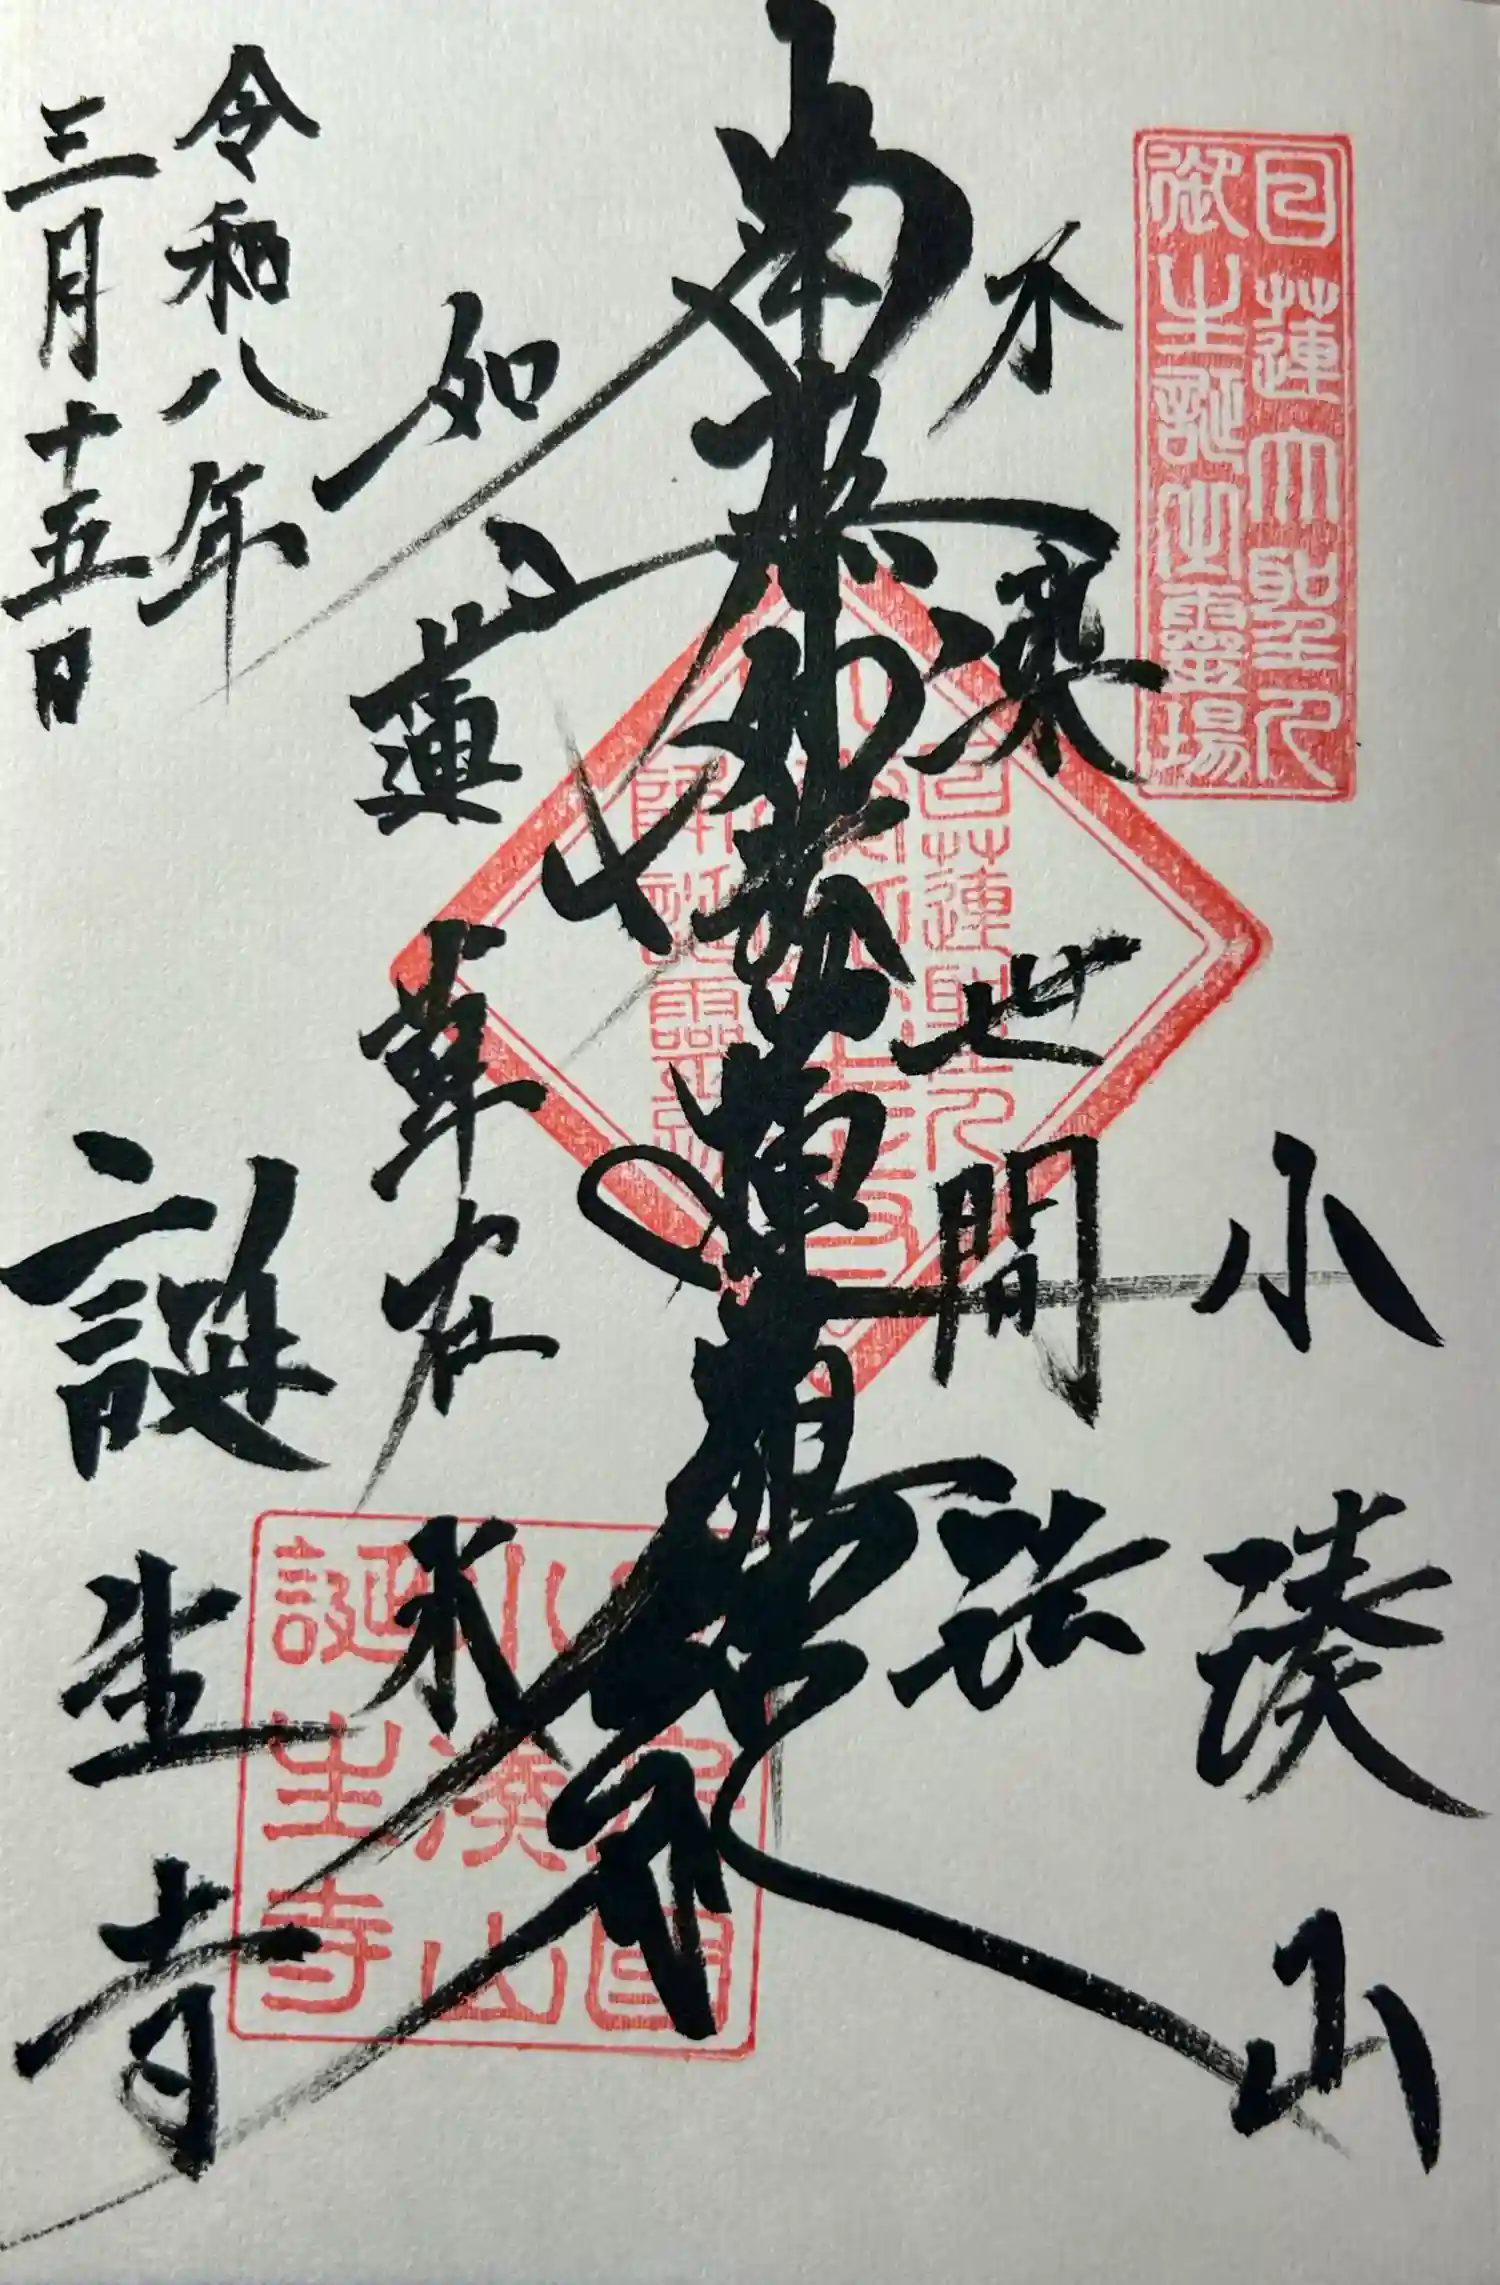 日蓮大聖人
御生誕之霊場
小湊山
不染世間法
南無妙法蓮華経
如蓮華在水
誕生寺
令和八年
三月十五日
日蓮聖人
降誕霊
小湊山
誕生寺